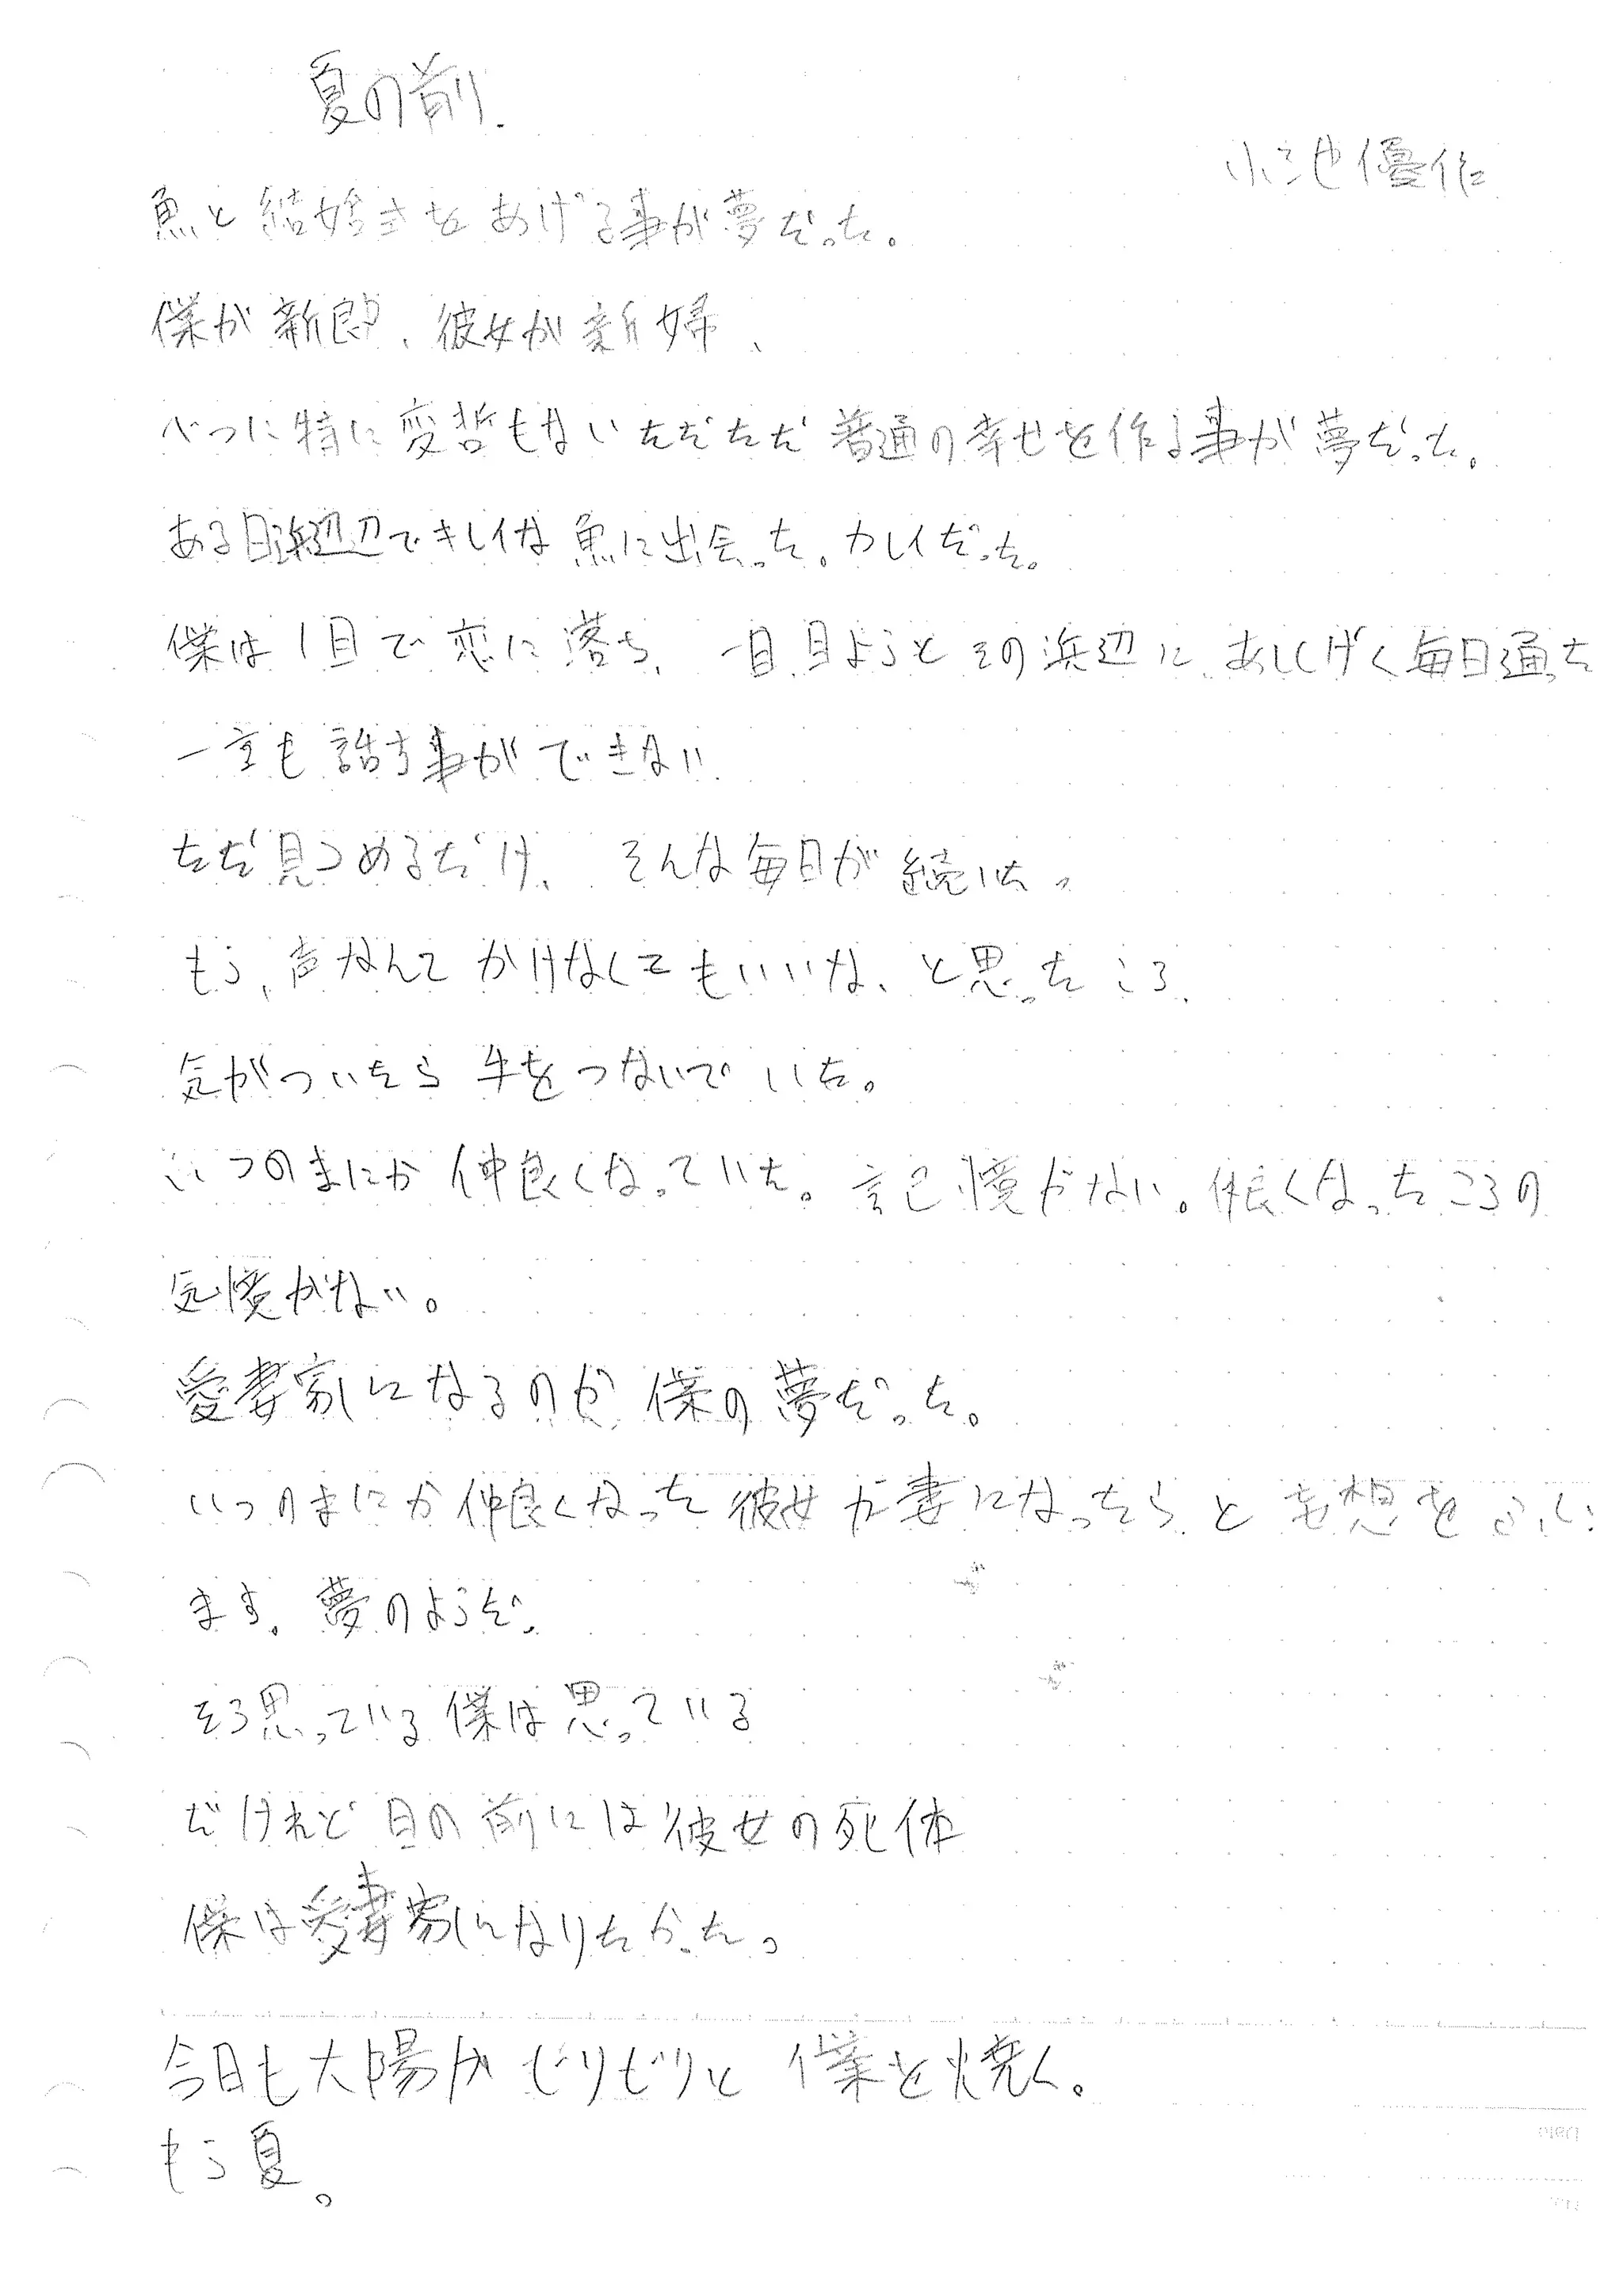 夏の前.
小池優作
魚と結婚式をあげる事が夢だった。
僕が新郎、彼女が新婦、
べつに特に変哲もないただただ普通の幸せを作る事が夢だった。
ある日浜辺でキレイな魚に出会った。カレイだった。
僕は1目で恋に落ち、一目見ようとその浜辺に、あししげく毎日通った
一言も話す事ができない
ただ見つめるだけ、そんな毎日が続いた。
もう、声なんてかけなくてもいいな、と思ったころ、
気がついたら手をつないでいた。
いつのまにか仲良くなっていた。記憶がない。仲良くなったころの
気憶がない。
愛妻家になるのが僕の夢だった。
いつのまにか仲良くなった彼女が妻になったらと妄想を
ます。夢のようだ。
そう思っている僕は思っている
だけれど目の前には彼女の死体
僕は愛妻家になりたかった。
今日も太陽がじりじりと僕を焼く。
もう夏。